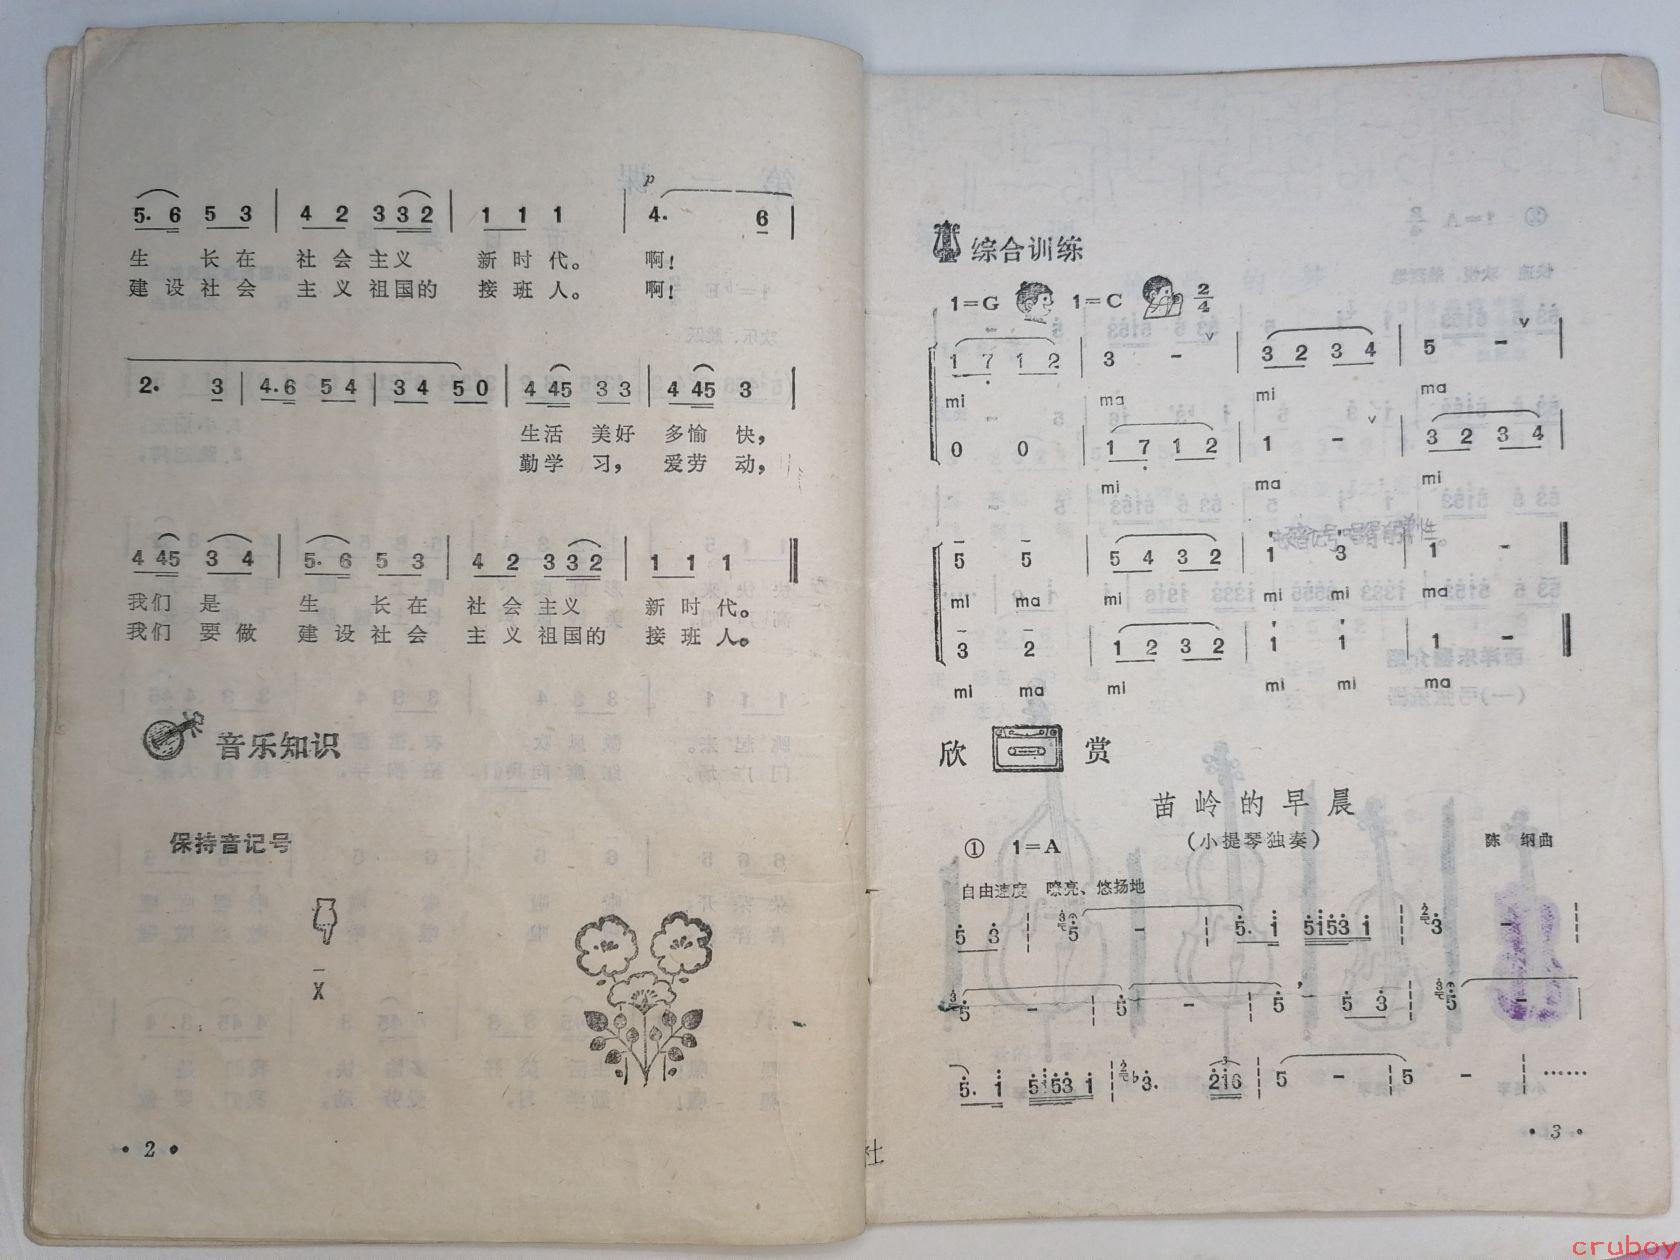 p
5. 6 5 3 | 4 2 3 3 2 | 1 1 1 | 4. 6 |
生 长 在 社 会 主 义 新 时 代。 啊！
建 设 社 会 主 义 祖 国 的 接 班 人。 啊！
2. 3 | 4. 6 5 4 | 3 4 5 0 | 4 4 5 3 3 | 4 4 5 3 |
生 活 美 好 多 愉 快，
勤 学 习， 爱 劳 动，
4 4 5 3 4 | 5. 6 5 3 | 4 2 3 3 2 | 1 1 1 ‖
我 们 是 生 长 在 社 会 主 义 新 时 代。
我 们 要 做 建 设 社 会 主 义 祖 国 的 接 班 人。
音乐知识
保持音记号
X
• 2 •
综合训练
1=G 1=C 2/4
1 7 1 2 | 3 - | 3 2 3 4 | 5 - |
mi ma mi ma
0 0 | 1 7 1 2 | 1 - | 3 2 3 4 |
mi ma mi
5 5 | 5 4 3 2 | 1 3 | 1 - ‖
mi ma mi mi mi ma
3 2 | 1 2 3 2 | 1 1 | 1 - ‖
mi ma mi mi mi ma
欣 赏
苗 岭 的 早 晨
（小提琴独奏）
① 1=A
陈 纲曲
自由速度 嘹亮、悠扬地
5 3 | 5 - | 5. 1 5153 1 | 3 - |
5 - | 5 - | 5 - 5 3 | 5 - |
5. 1 5153 1 | ♭3. 216 | 5 - | 5 - | ……
• 3 •
社
cruboy